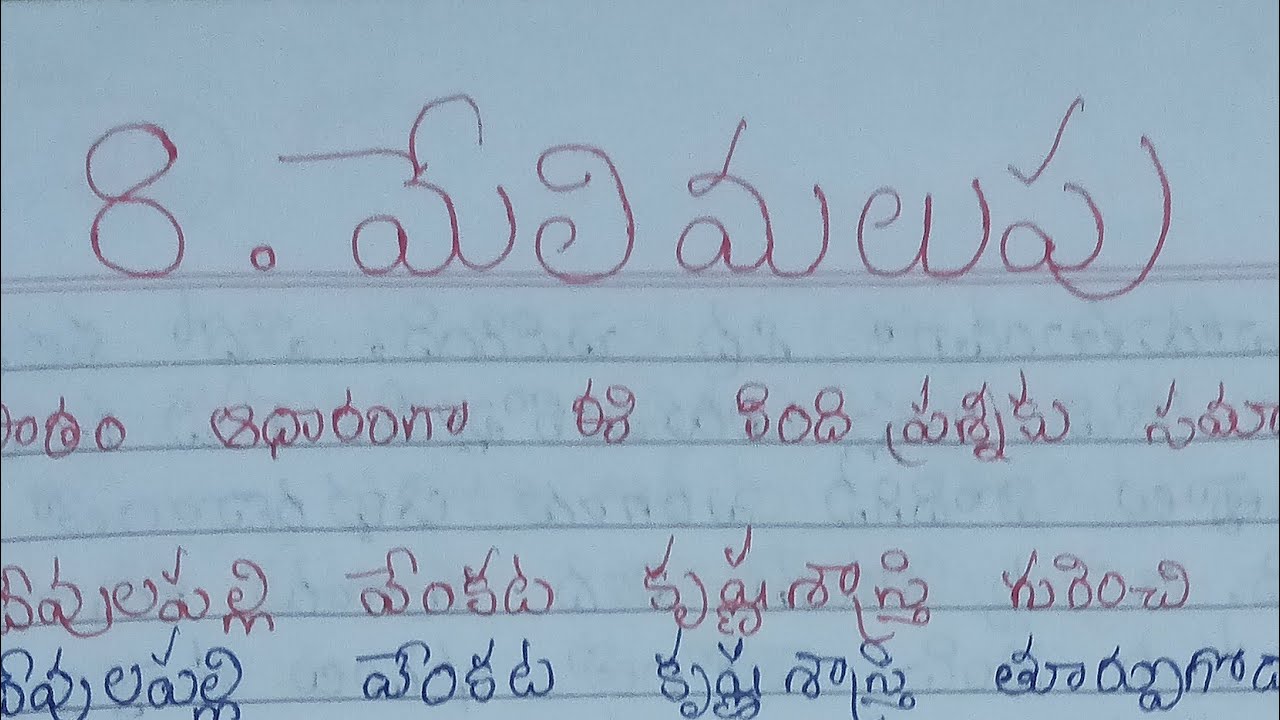 8. మేలిమలుపు
ఆధారంగా ఈ కింది ప్రశ్నకు
దేవులపల్లి వేంకట కృష్ణశాస్త్రి గురించి
దేవులపల్లి వేంకట కృష్ణశాస్త్రి